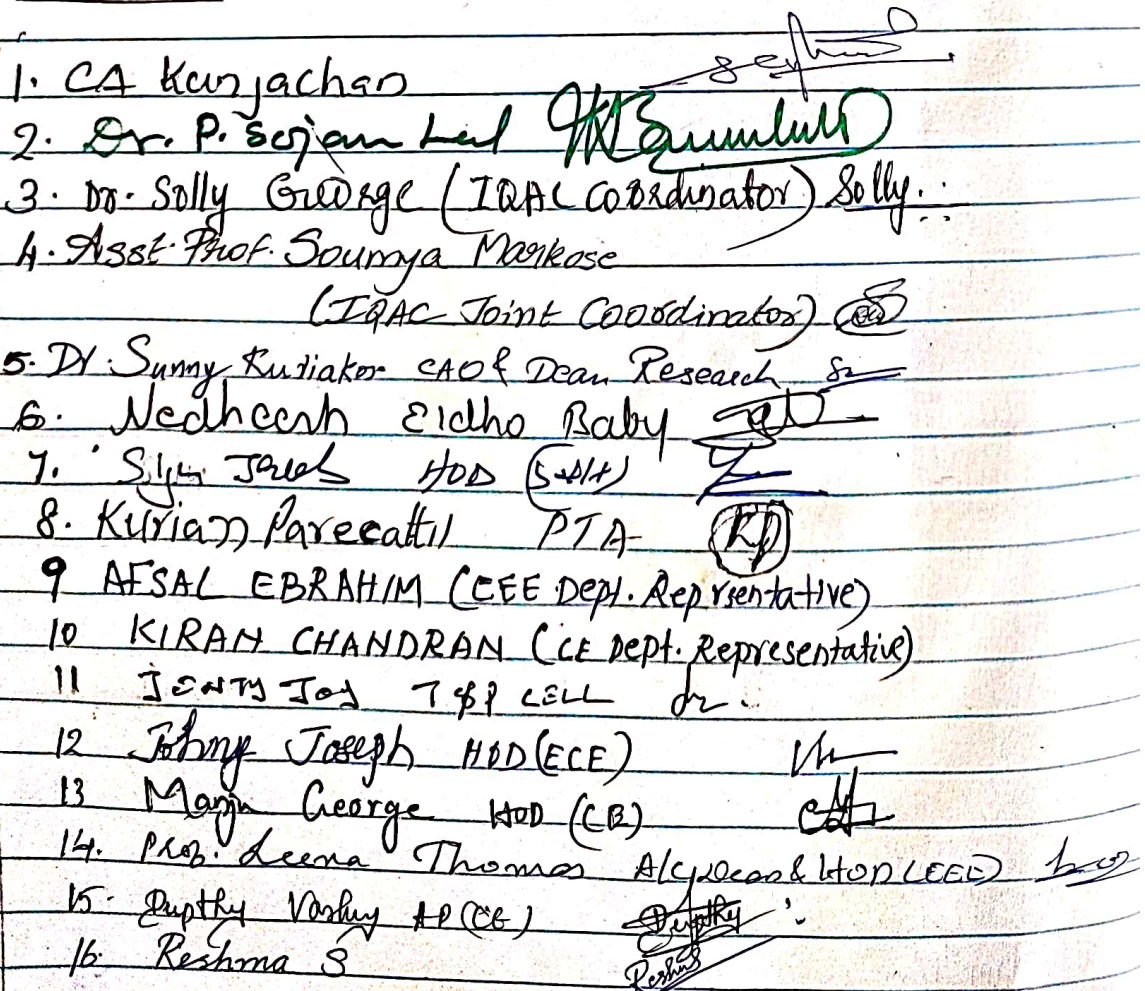 1. CA Kunjachan
2. Dr. P. Sojan Lal
3. Dr. Solly George (IQAC Coordinator) Solly
4. Asst. Prof. Soumya Markose
(IQAC Joint Coordinator)
5. Dr. Sunny Kuriakose CAO & Dean Research
6. Nedheesh Eldho Baby
7. HOD
8. Kurian Pareecattil PTA KP
9 AFSAL EBRAHIM (EEE Dept. Reprsentative)
10 KIRAN CHANDRAN (CE Dept. Representative)
11 JENTY JOY T&P CELL
12 Johny Joseph HOD (ECE)
13 Manju George HOD
14. Prof. Leena Thomas & HOD (EEE)
15. AP (CE) Dupthy
16. Reshma S Reshma